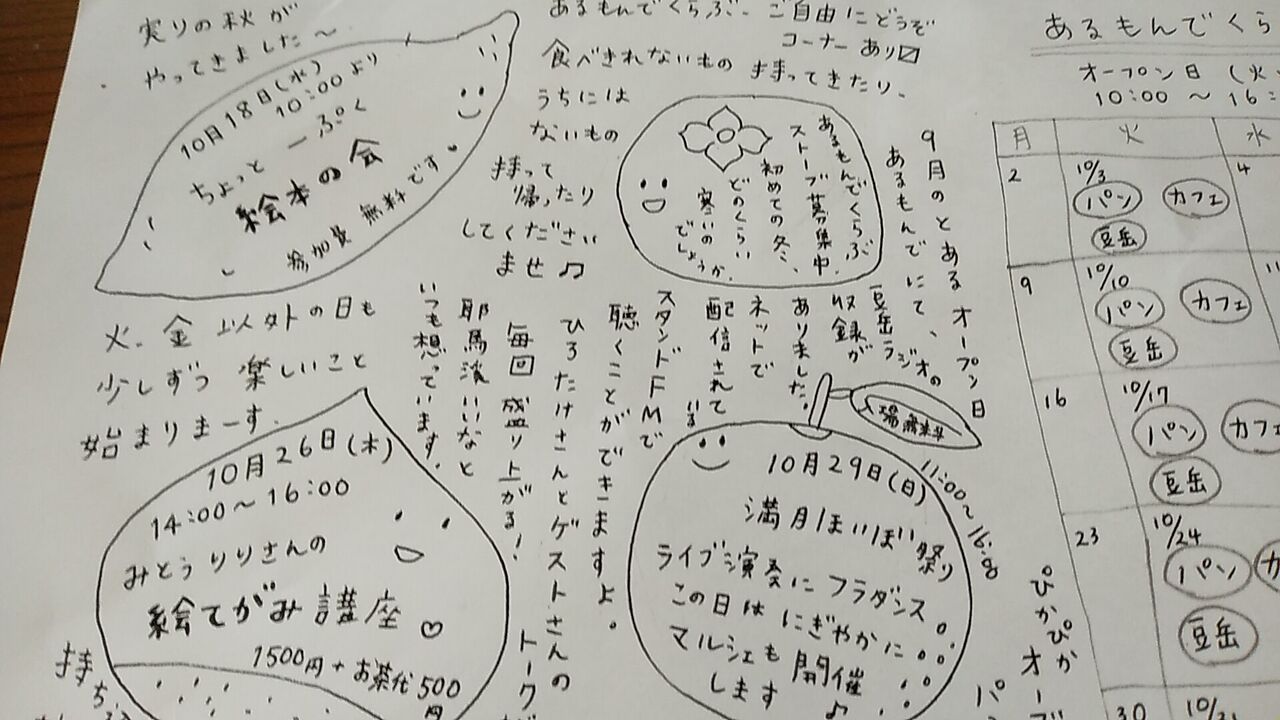 実りの秋が
やってきました～
10月18日(水)
10:00より
ちょっと一ぷく
絵本の会
参加費無料です
火、金以外の日も
少しずつ楽しいこと
始まりまーす.
10月26日(木)
14:00～16:00
みとうりりさんの
絵てがみ講座♡
1500円+お茶代500
円
持ち
あるもんでくらぶ、ご自由にどうぞ
コーナーあり
食べきれないもの持ってきたり、
うちには
ないもの
持って
帰ったり
してください
ませ♫
あるもんでくらぶ
ストーブ募集中.
初めての冬、
どのくらい
寒いの
でしょうか.
9月のとあるオープン日
あるもんでにて、
豆岳ラジオの
収録が
ありました.
ネットで
配信されて
いる
スタンドFMで
聴くことができますよ。
ひろたけさんとゲストさんの
トーク
毎回盛り上がる!
耶馬渓いいなと
いつも想っています.
入場無料
10月29日(日)
11:00～16:00
満月ぽいぽい祭り
ライブ演奏にフラダンス
この日はにぎやかに
マルシェも開催
します♪
あるもんでくら
オープン日(火、
10:00～16:
月 火 水
2 10/3 4
パン カフェ
豆岳
9 10/10 11
パン カフェ
豆岳
16 10/17
パン カフェ
豆岳
23 10/24
パン カ
豆岳
30
ぴかぴか
オーブ
パ